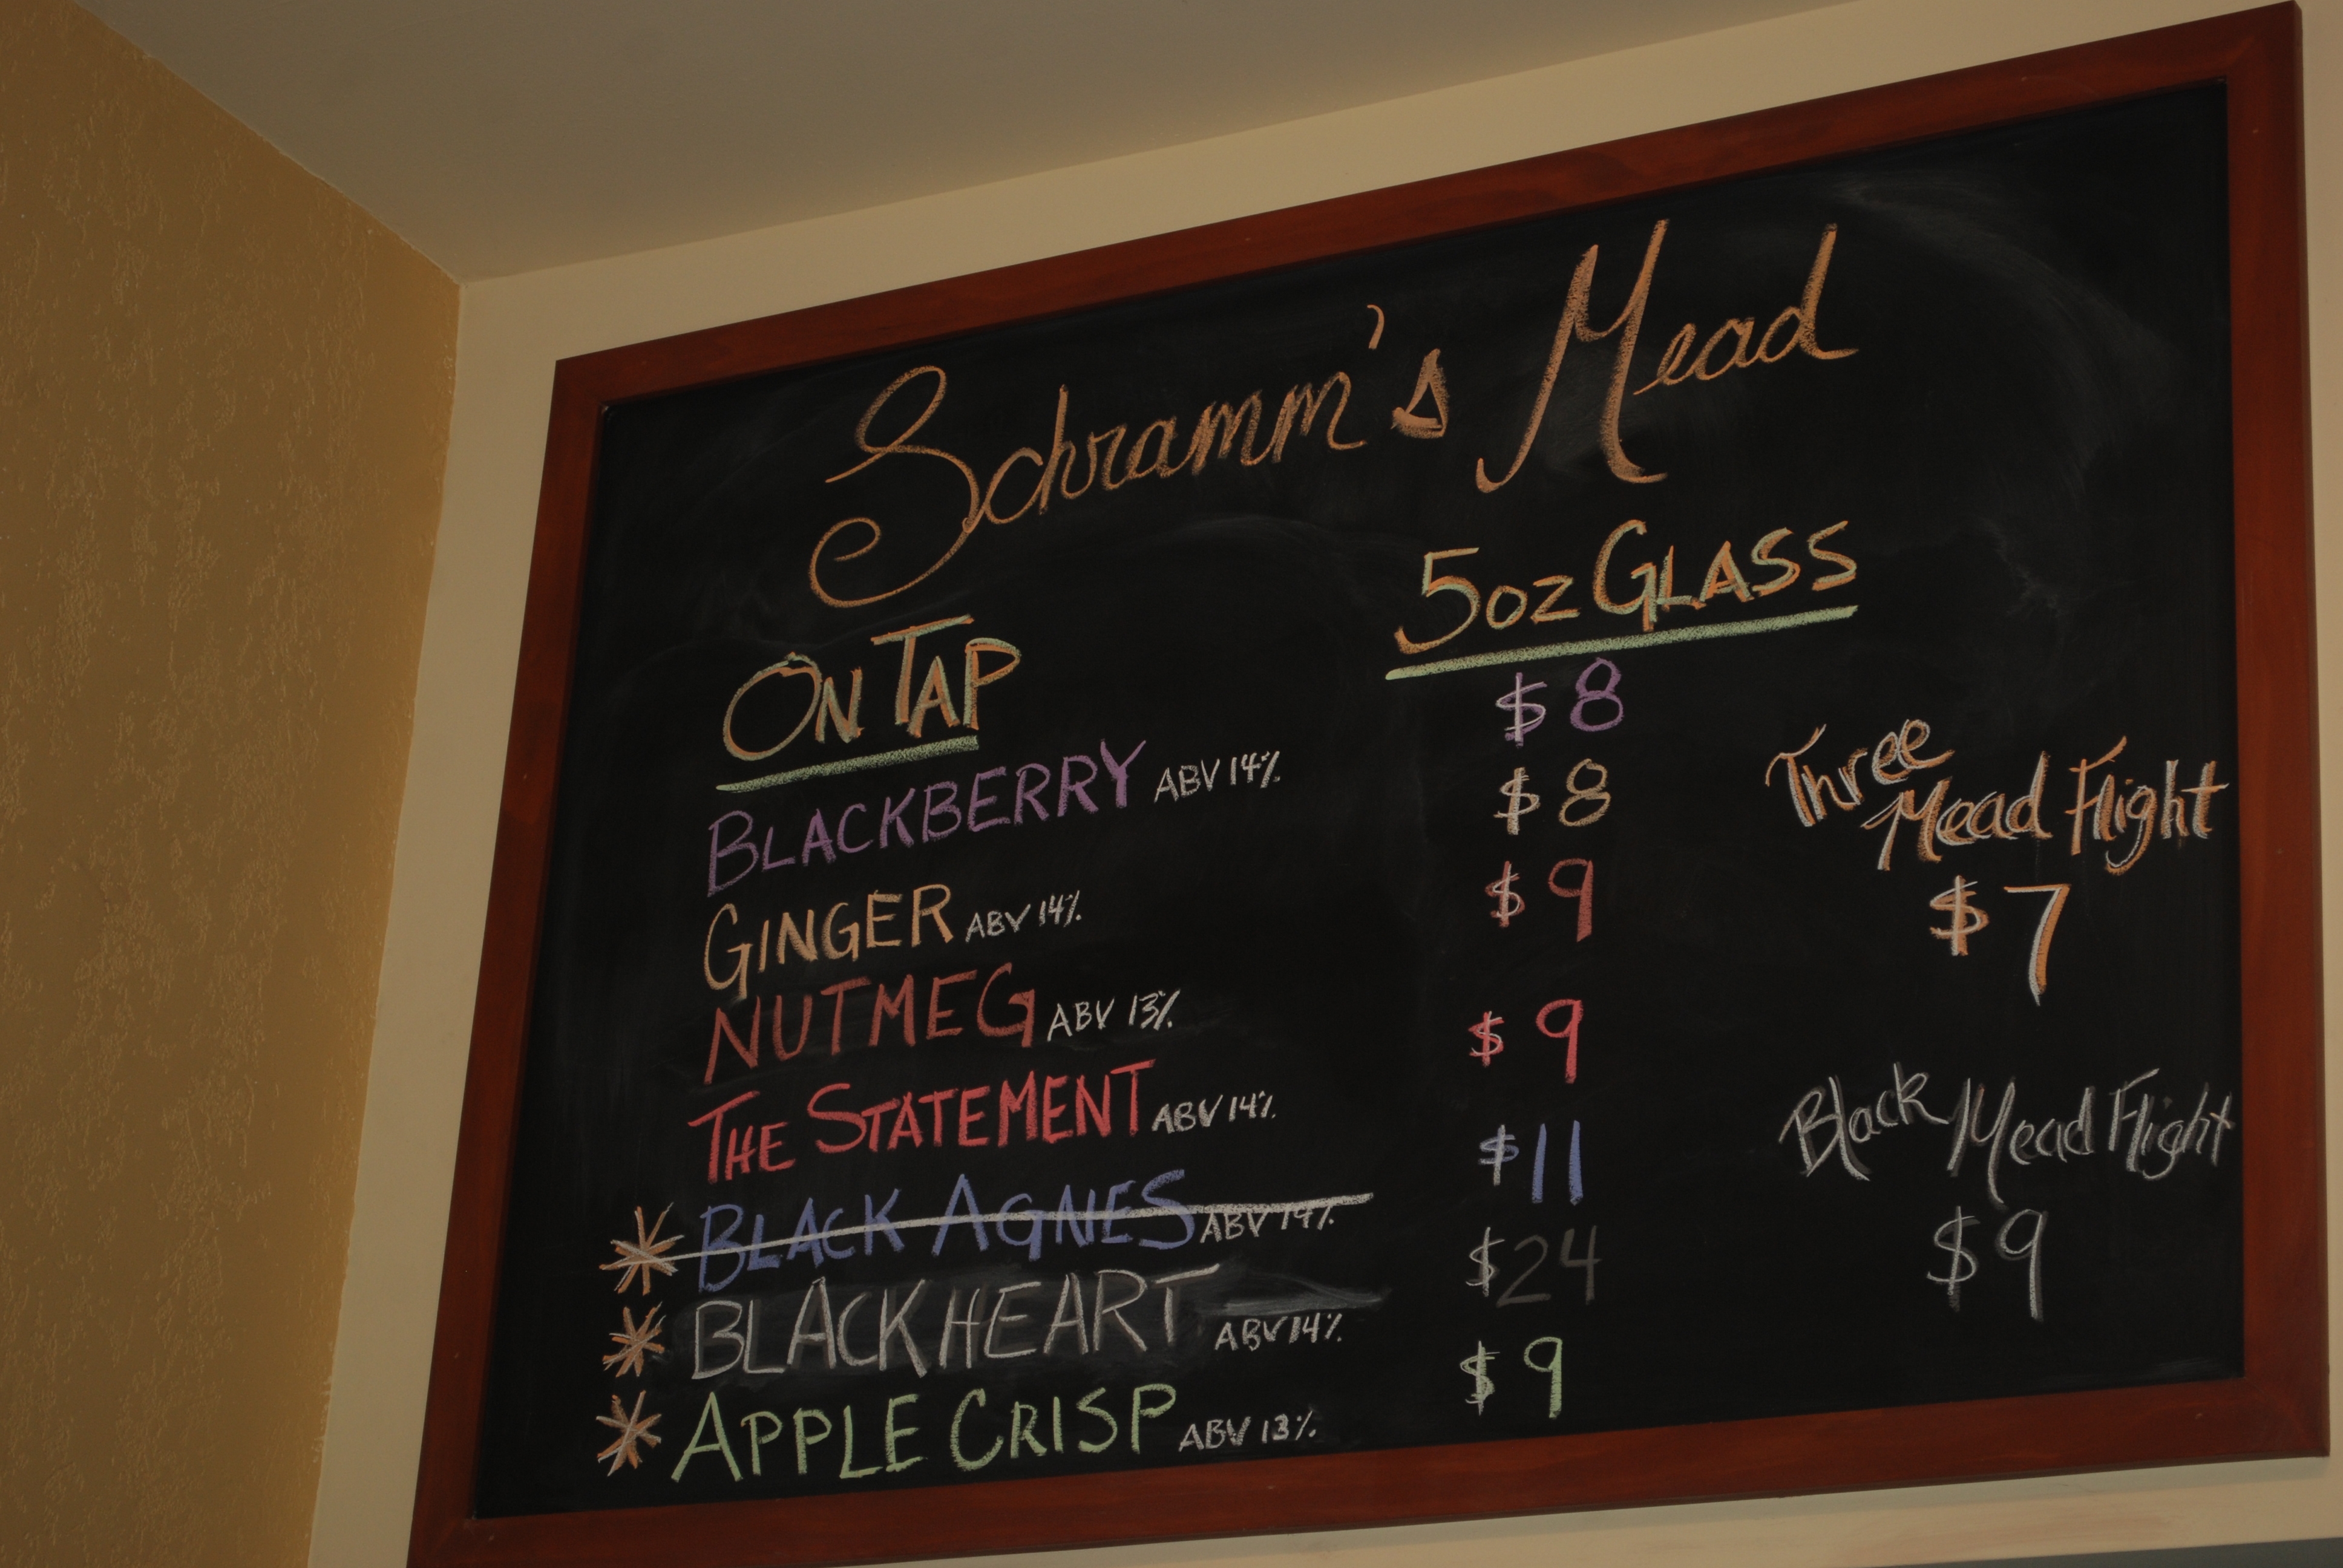 Schramm's Mead
ON TAP 5oz GLASS
BLACKBERRY ABV 14% $8
GINGER ABV 14% $8
NUTMEG ABV 13% $9
THE STATEMENT ABV 14% $9
* BLACK AGNES ABV 14% $11
* BLACK HEART ABV 14% $24
* APPLE CRISP ABV 13% $9
Three
Mead Flight
$7
Black Mead Flight
$9